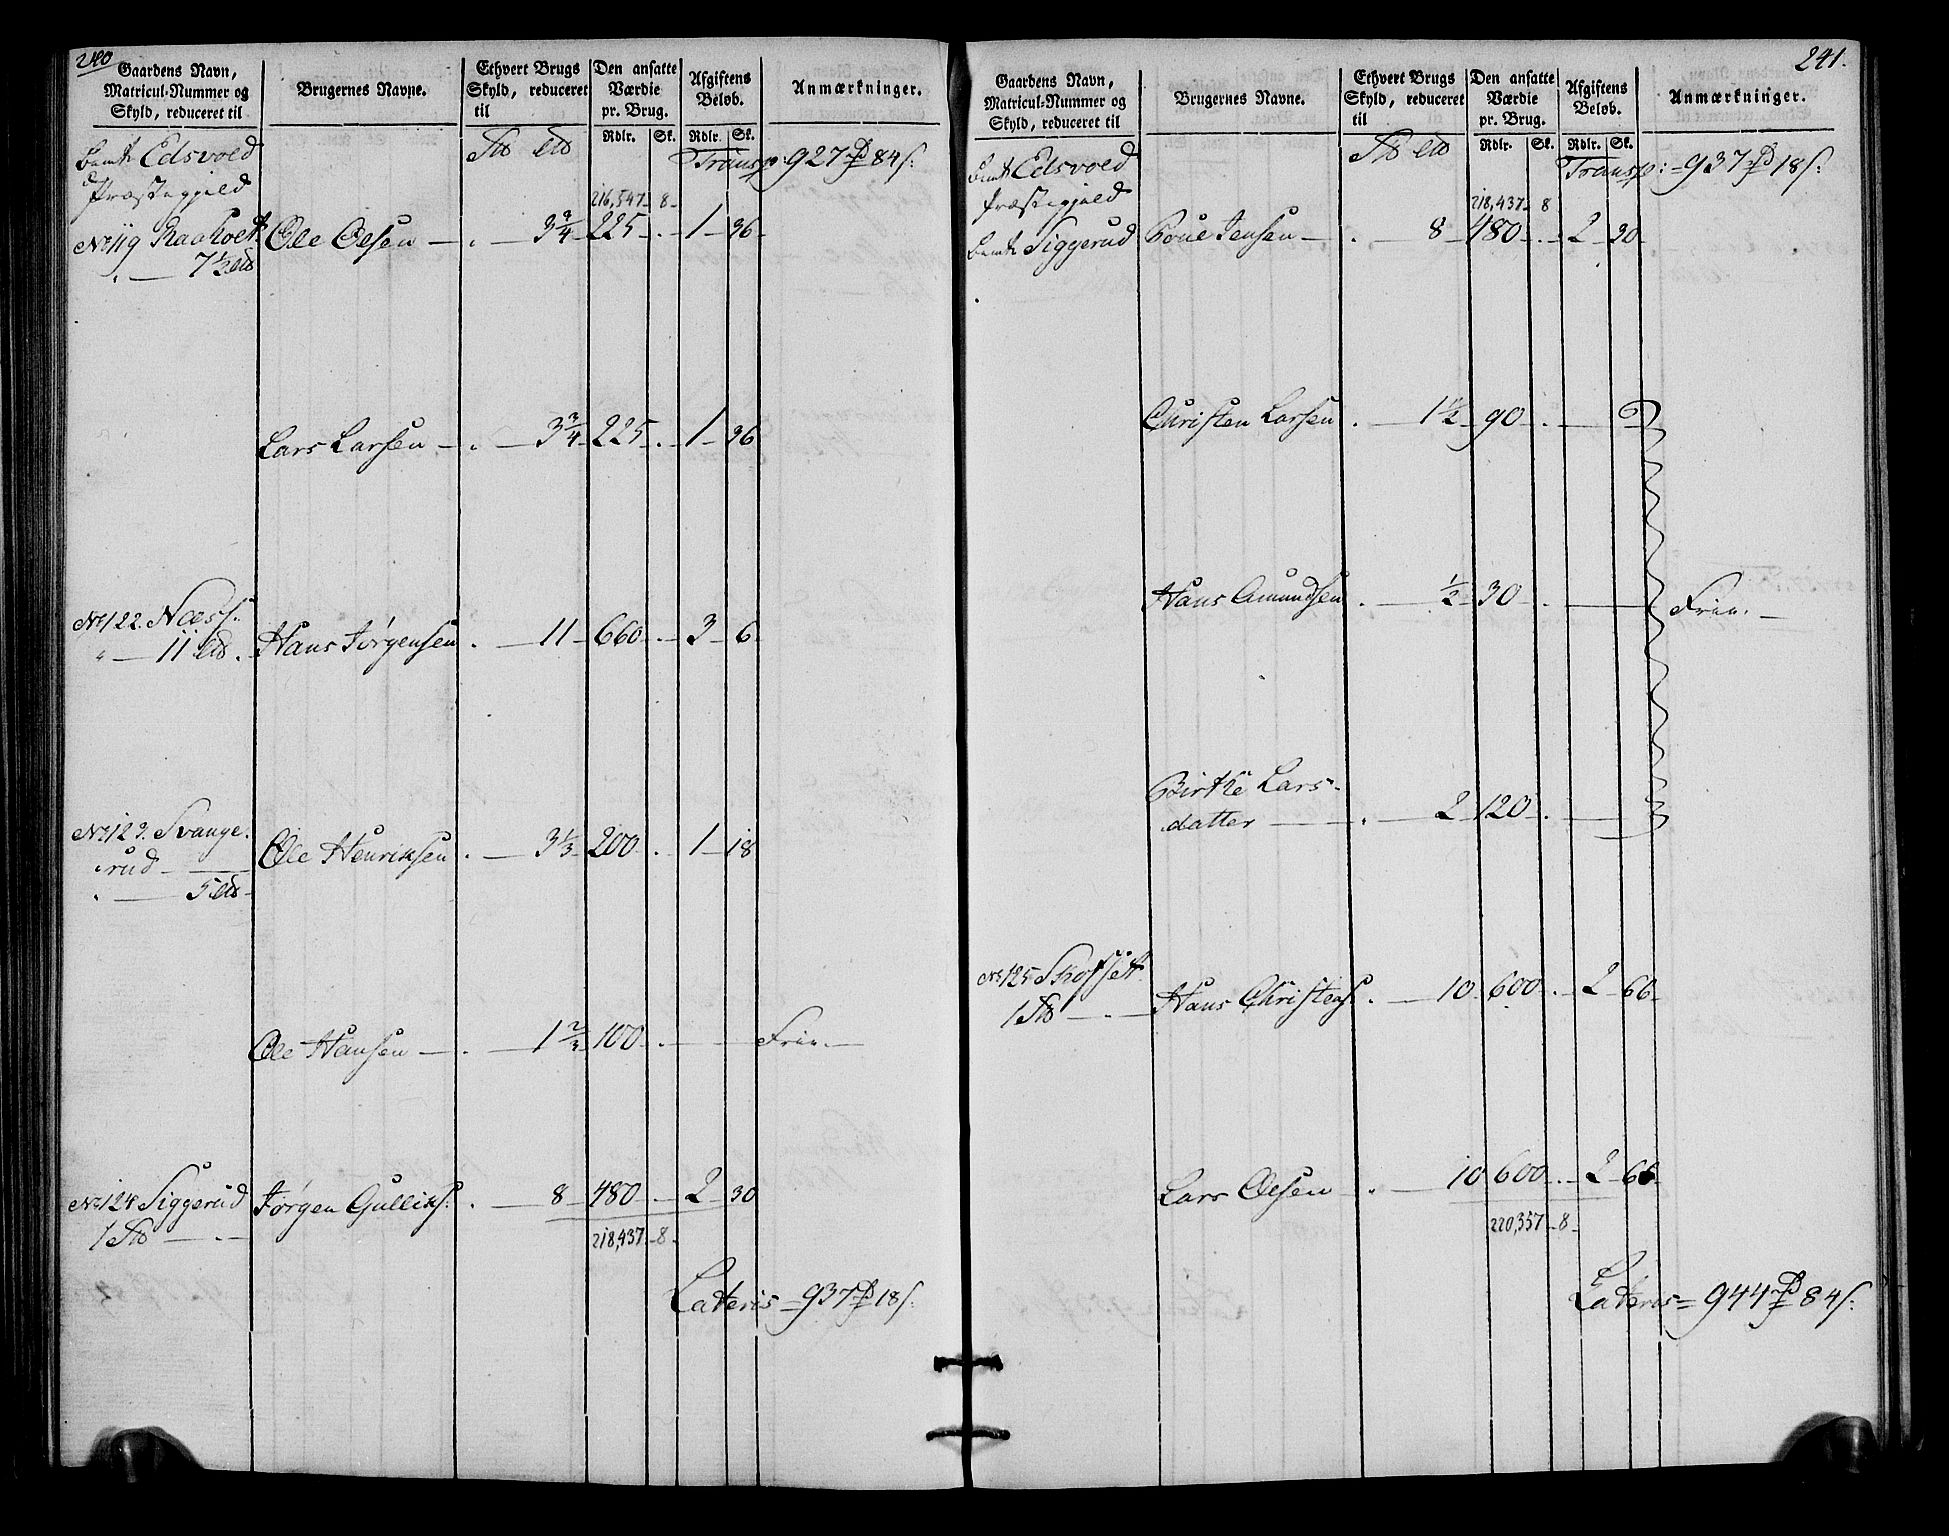 240
Gaardens Navn,
Matricul-Nummer og
Skyld, reduceret til
Brugernes Navne.
Ethvert Brugs
Skyld, reduceret
til
Den ansatte
Værdie
pr. Brug.
Rdlr. Sk.
Afgiftens
Beløb.
Rdlr. Sk.
Anmærkninger.
Edsvold
Præstegjeld
Transp: 927 84 s:
216,547 8
No 119 Raaholt Ole Olsen 3 3/4 225 1 36
7 1/2
Lars Larsen 3 3/4 225 1 36
No 122. Næss:
11 Hans Jørgensen 11 660 3 6
No 123. Svange-
rud Ole Henriksen 3 1/3 200 1 18
5
Ole Hansen 1 2/3 100 Frie.
No 124 Siggerud Jørgen Gulliks: 8 480 2 30
1
218,437 8
Lateris = 937 18 s:
241.
Gaardens Navn,
Matricul-Nummer og
Skyld, reduceret til
Brugernes Navne.
Ethvert Brugs
Skyld, reduceret
til
Den ansatte
Værdie
pr. Brug.
Rdlr. Sk.
Afgiftens
Beløb.
Rdlr. Sk.
Anmærkninger.
Edsvold
Præstegjeld
Transp: = 937 18 s:
218,437 8
Siggerud Poul Jensen 8 480 2 30
Christen Larsen 1 1/2 90
Hans Amundsen 1/2 30 Frie.
Birthe Lars-
datter 2 120
No 125 Skofsett
1 Hans Christens: 10 600 2 66
Lars Olsen 10 600 2 66
220,357 8
Lateris = 944 84 s: